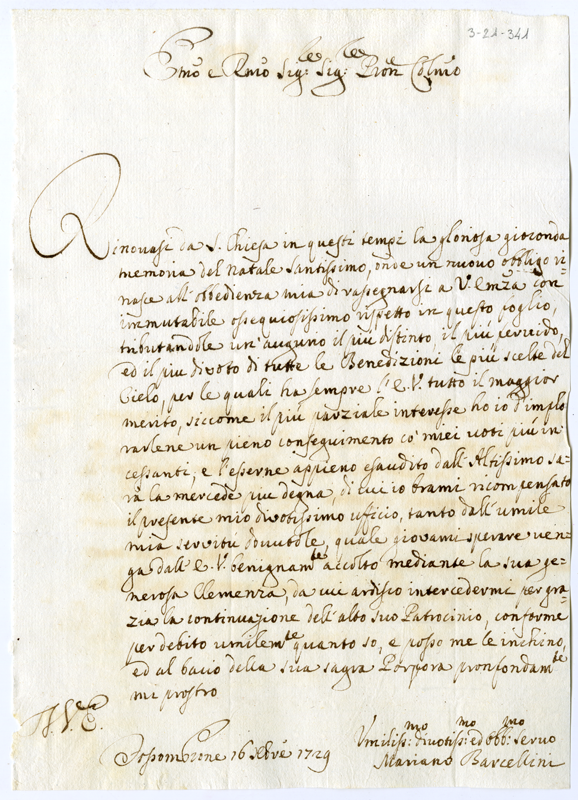 3-21-341
Emo e Rmo Sig:re Sig:re Pron Colmo
Rinovasi da S. Chiesa in questi tempi la gloriosa gioconda
memoria del Natale Santissimo, onde un nuovo obbligo ri-
nasce all'obbedienza mia di rassegnarsi a V. Emza con
immutabile ossequiosissimo rispetto in questo foglio,
tributandole un'auguno il più distinto, il più fervido,
ed il piu divoto di tutte le Benedizioni le più scelte del
Cielo, per le quali ha sempre l'E.V. tutto il maggior
merito, siccome il più parziale interesse ho io d'implo
rarlene un pieno conseguimento co' miei voti più in
cessanti, e l'esserne appieno esaudito dall'Altissimo sa-
rà la mercede piu degna, di cui io brami ricompensato
il presente mio divotissimo ufficio, tanto dall'umile
mia servitù dovutole, quale giovami sperare ven-
ga dall'E.V. benignamte accolto mediante la sua ge-
nerosa Clemenza, da cui ardisco intercedermi per gra-
zia la continuazione dell'alto suo Patrocinio, conforme
per debito umilemte quanto so, e posso me le inchino,
ed al bacio della sua sagra Porpora pronfondamte
mi prostro
Di V. E.
Fossombrone 16 Xbre 1729
Umiliss:mo divotiss:mo ed obb:mo Servo
Mariano Barcellini